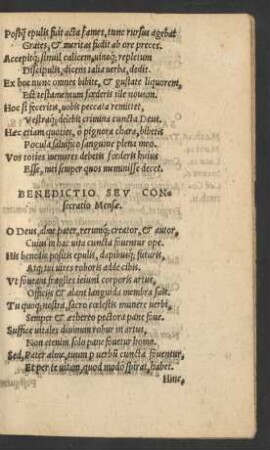 Postq́ epulis fuit acta fames, tunc rursus agebat
Grates, & meritas fudit ab ore preces.
Acceptiq́; simul calicem, uinoq́; repletum
Discipulis, dicens talia uerba, dedit.
Ex hoc nunc omnes bibite, & gustate liquorem,
Est testamentum fœderis ille nouum.
Hoc si feceritis, uobis peccata remittet,
Vestraq́; delebit crimina cuncta Deus.
Hæc etiam quoties, ô pignora chara, bibetis
Pocula salutifico sanguine plena meo.
Vos toties memores debetis fœderis huius
Esse, mei semper quos meminisse decet.
BENEDICTIO SEV CON-
secratio Mensæ.
O Deus, alme pater, rerumq́; creator, & autor,
Cuius in hac uita cuncta fouentur ope.
His benedic positis epulis, dapibusq́; futuris,
Atq; tui uires roboris adde cibis.
Vt foueant fragiles ieiuni corporis artus,
Officijs & alant languida membra suis.
Tu quoq; nostra, sacro cœlestis munere uerbi,
Semper & æthereo pectora pane foue.
Suffice uitales diuinum robur in artus,
Non etenim solo pane fouetur homo.
Sed, Pater alme, tuum p uerbũ cuncta fouentur,
Et per te uitam, quod modo spirat, habet.
Hinc,